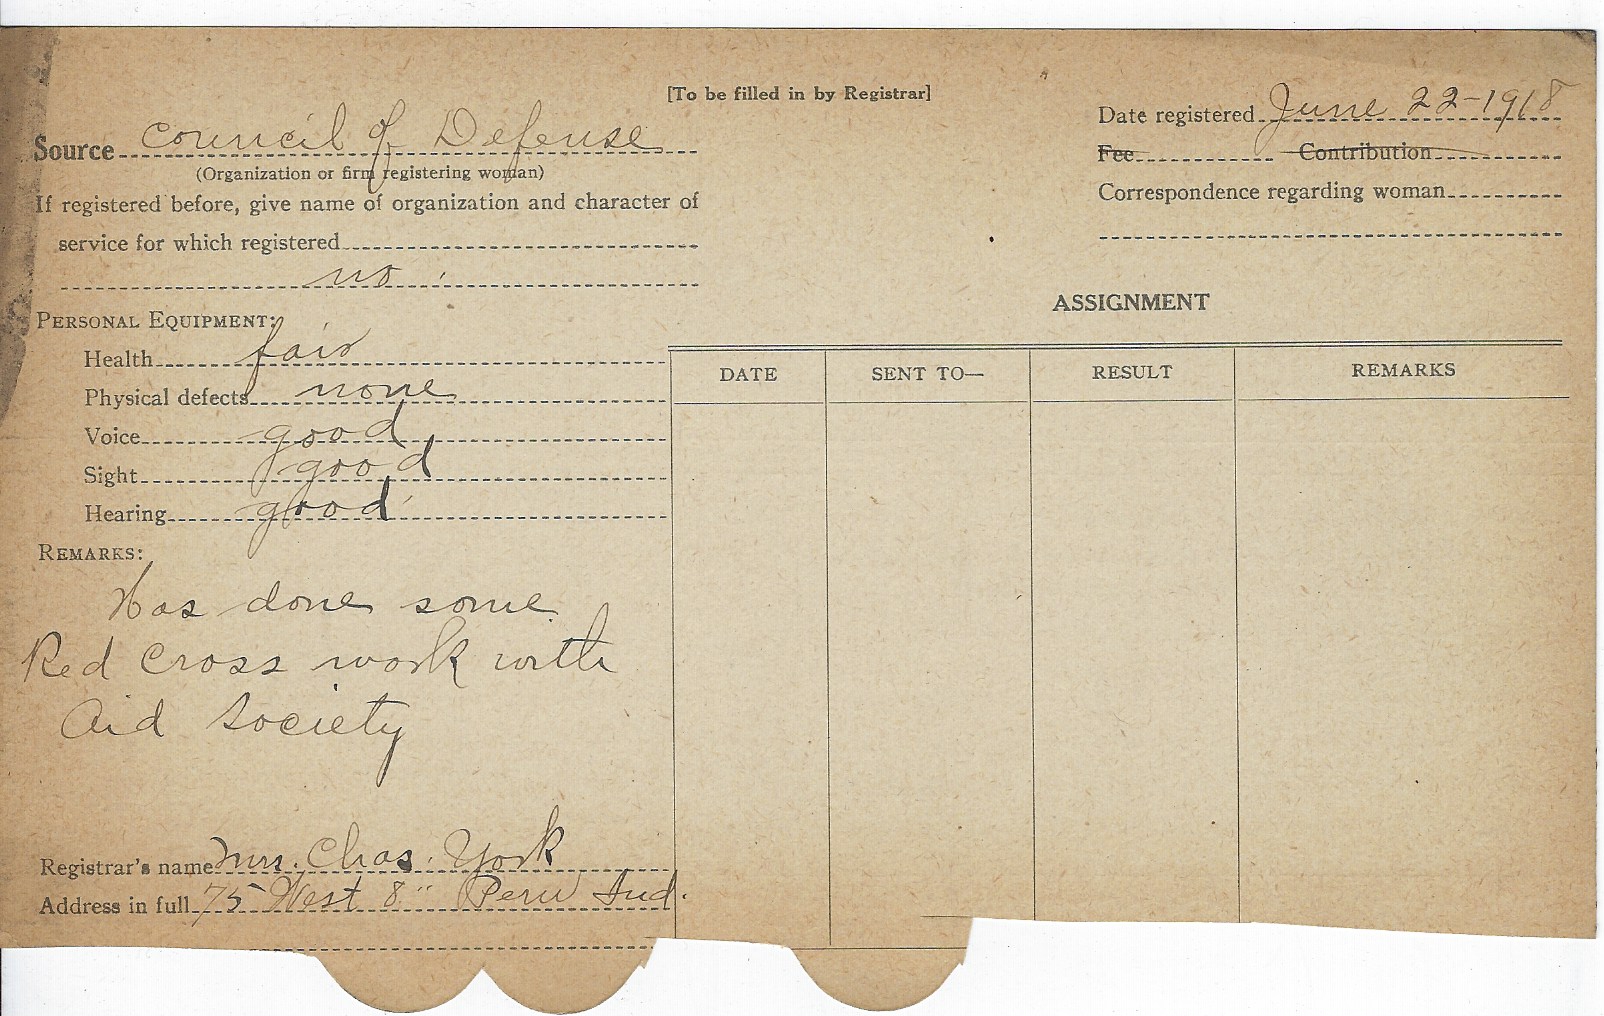 [To be filled in by Registrar]
Source Council of Defense
(Organization or firm registering woman)
If registered before, give name of organization and character of
service for which registered
no
PERSONAL EQUIPMENT:
Health fair
Physical defects none
Voice good
Sight good
Hearing good
REMARKS:
Has done some
Red Cross work with
Aid Society
Registrar's name Mrs. Chas. York
Address in full 75 West 8" Peru Ind.
Date registered June 22-1918
Fee Contribution
Correspondence regarding woman
ASSIGNMENT
DATE SENT TO— RESULT REMARKS